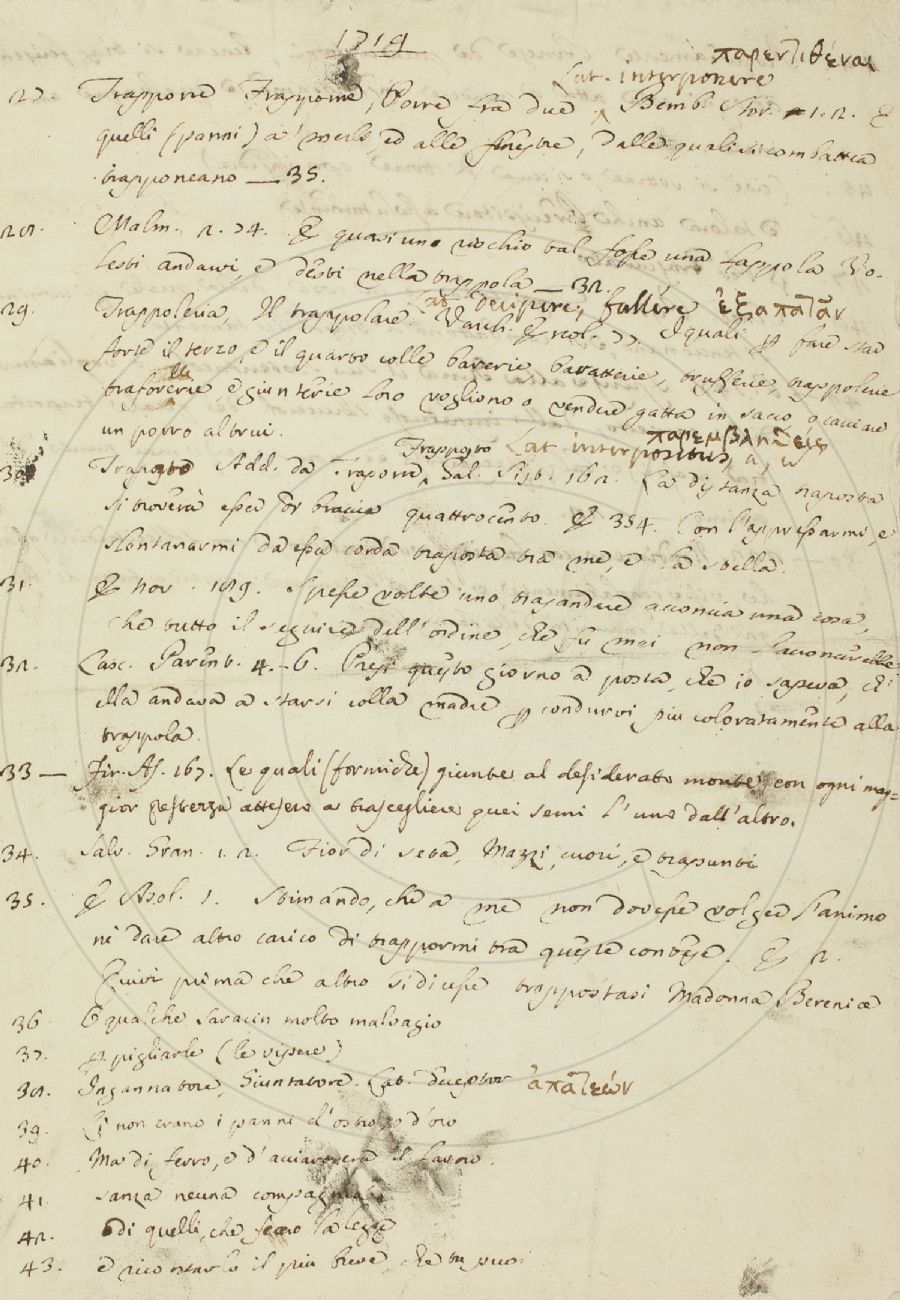 1719
παρεντιθέναι
Lat. interponere
27. Trapporre Frapporre, Porre fra due, Bemb. Stor. 1. 2. E
quelli (panni) a' merli, ed alle finestre, dalle quali si combattea
trapponeano — 35.
28. Malm. 2. 74. E quasi un vecchio tal fosse una tappola Vo-
lesti andarvi, e desti nella trappola — 32.
Lat. decipere, fallere ἐξαπατᾶν
29. Trappoleria, Il trappolare. Varch. Ercol. 77. I quali per fare stare
forte il terzo, e il quarto colle barerie, baratterie, trufferie, trappolerie
traforerie, e giunterie loro vogliono o vendere gatta in sacco, o cacciare
un porro altrui.
παρεμβληθείς
Trapposto Lat. interpositus, a, um
30. Traposto Add. da Traporre, Gal. Sist. 162. La distanza traposta
si troverà esser braccia quattrocento. E 354. Con l'appressarmi, e
slontanarmi da essa corda traposta tra me, e la stella.
31. E nov. 189. Spesse volte uno trasandere acconcia una cosa,
che tutto il seguire dell'ordine, che fu mai non l'acconcerebbe
32. Lasc. Parent. 4. 6. Presi questo giorno a posta, che io sapeva, ch'
ella andava a starsi colla madre per condurvi più coloratamente alla
trappola.
33 — Fir. As. 167. Le quali (formiche) giunte al desiderato monte con ogni mag-
gior prestezza attesero a trascegliere quei semi l'uno dall'altro.
34. Salv. Gran. 1. 2. Fior di seta, Mazzi, cuori, e trapunti
35. E Asol. 1. Stimando, che a me non dovesse volger l'animo
nè dare altro carico di trappormi tra queste contese. E 2.
Quivi prima che altro si dicesse trappostasi Madonna Berenice
36 O qualche saracin molto malvagio
37. per pigliarle (le vipere)
38. Ingannatore, Giuntatore. Lat. deceptor ἀπατεών
39. E non erano i panni d'ostro o d'oro
40. Ma di ferro, e d'acciaro era il lavoro.
41. sanza neuna compagnia
42. di quelli, che feciono la legge
43. e ricontarlo il più breve, che tu puoi